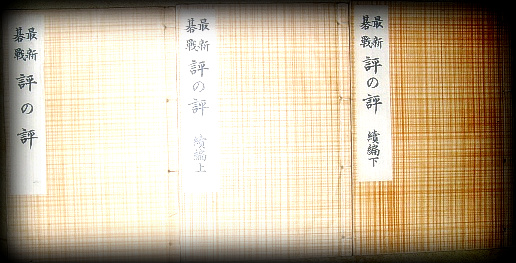 最新
碁戰
評の評
最新
碁戰
評の評 續編上
最新
碁戰
評の評 續編下